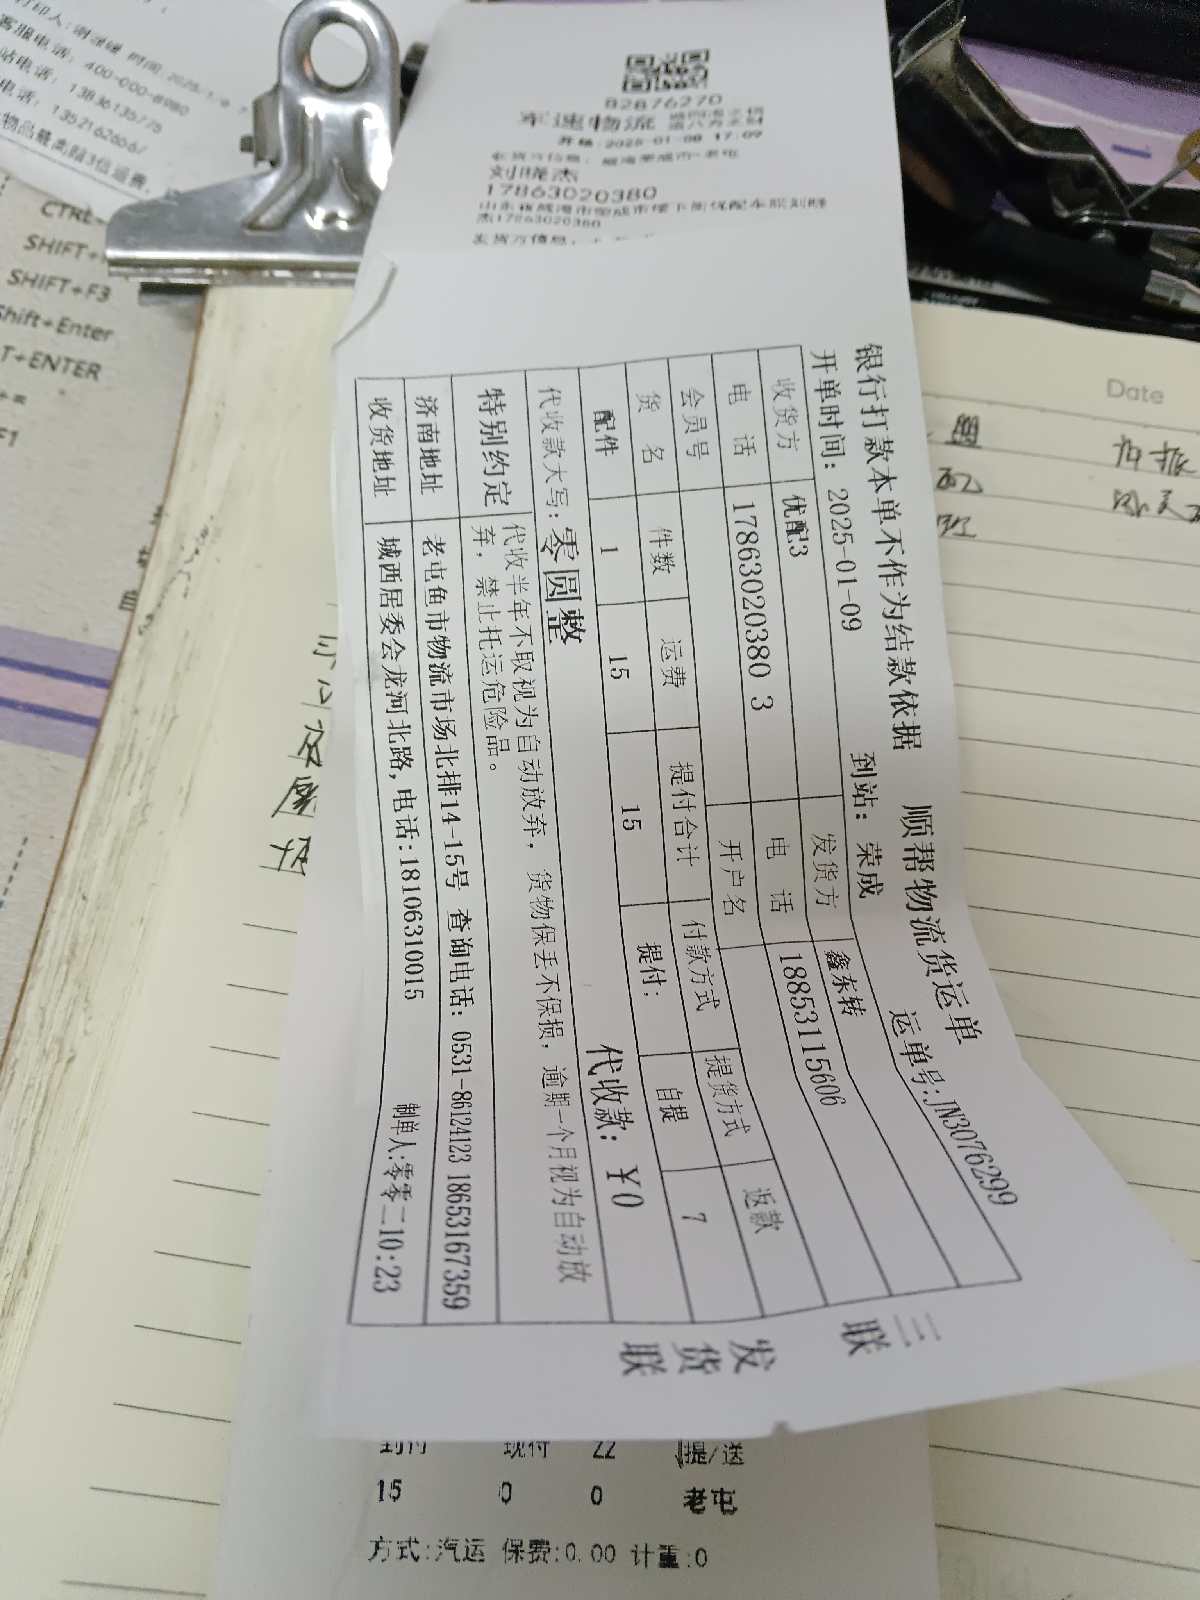 客服电话：400-000-8980
站电话：13836135775
物品最高赔3倍运费，
CTRL+
SHIFT+
SHIFT+F3
Shift+Enter
T+ENTER
F1
82876270
军速物流
开络：2025-01-08 17:09
刘晓杰
17863020380
杰17863020380
发货方信息：
Date
银行打款本单不作为结款依据 顺帮物流货运单
开单时间：2025-01-09 到站：荣成 运单号:JN3076299
收货方 优配3 发货方 鑫东转
电 话 17863020380 3 电 话 18853115606
会员号 开户名
货 名 件数 运费 提付合计 付款方式 提货方式 返款
配件 1 15 15 提付： 自提 7
代收款大写：零圆整 代收款：￥0
特别约定 代收半年不取视为自动放弃，货物保丢不保损，逾期一个月视为自动放
弃，禁止托运危险品。
济南地址 老屯鱼市物流市场北排14-15号 查询电话：0531-86124123 18653167359
收货地址 城西居委会龙河北路，电话:18106310015 制单人:零零二10:23
三联
发货联
到付 现付 提/送
15 0 0 老屯
方式:汽运 保费:0.00 计重:0